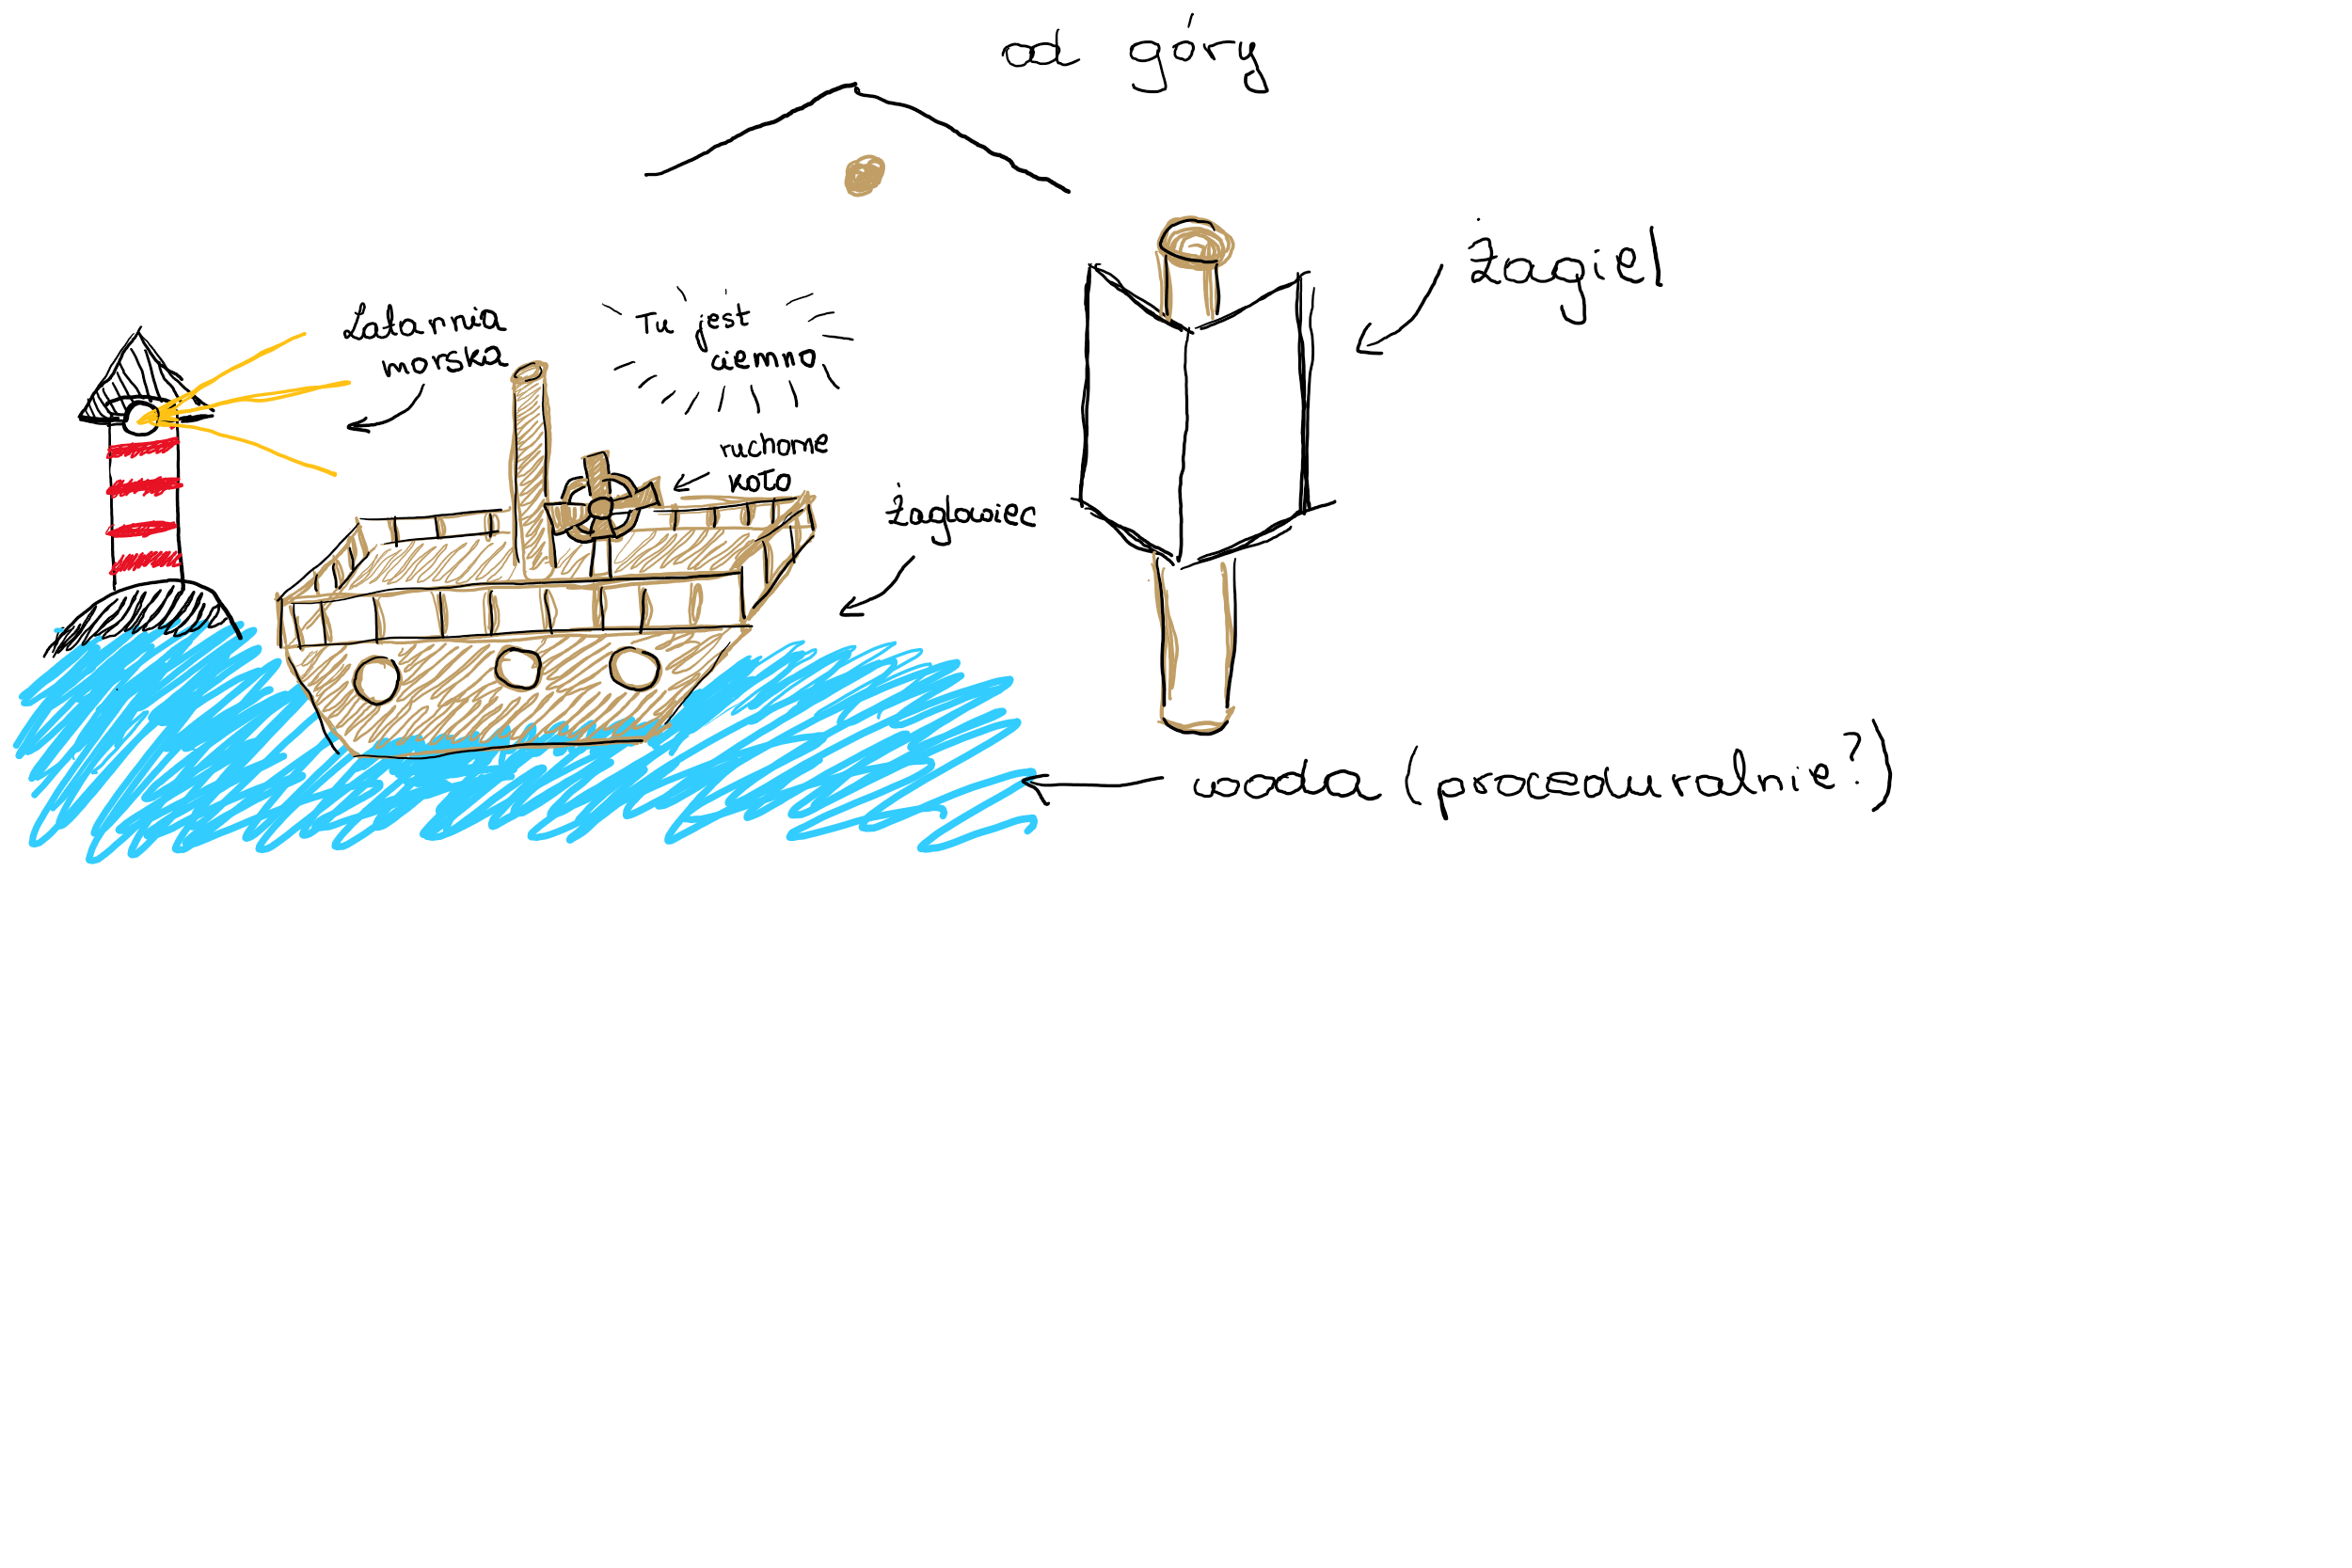 od góry
Żagiel
Latarnia
morska
Tu jest
ciemno
ruchome
koło
Żaglowiec
woda (proceduralnie?)